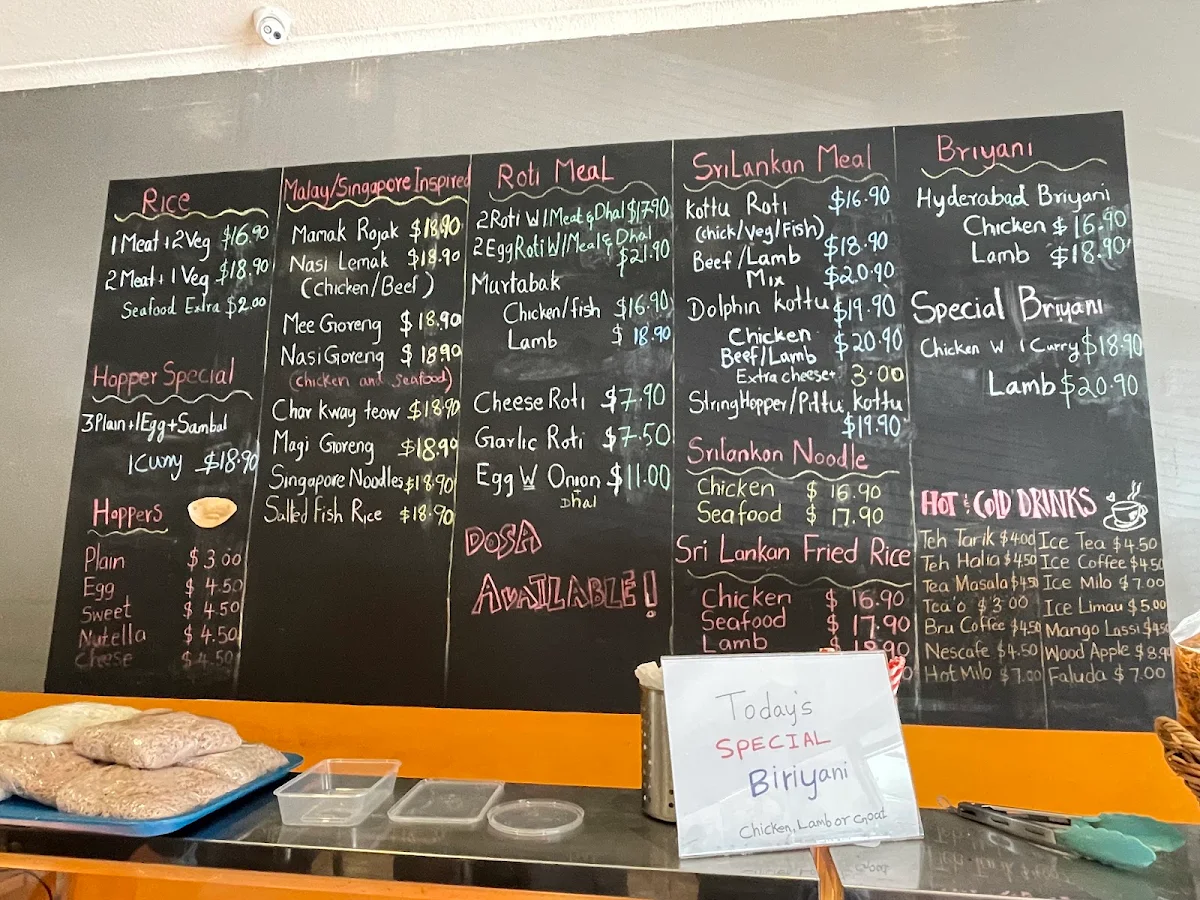 Rice
1 Meat + 2 Veg $16.90
2 Meat + 1 Veg $18.90
Seafood Extra $2.00
Hopper Special
3 Plain+1Egg+Sambal
1 Curry $18.90
Hoppers
Plain $3.00
Egg $4.50
Sweet $4.50
Nutella $4.50
Cheese $4.50
Malay/Singapore Inspired
Mamak Rojak $18.90
Nasi Lemak $18.90
(Chicken/Beef)
Mee Goreng $18.90
Nasi Goreng $18.90
(chicken and seafood)
Char kway teow $18.90
Magi Goreng $18.90
Singapore Noodles $18.90
Salted Fish Rice $18.90
Roti Meal
2 Roti W/1 Meat & Dhal $17.90
2 Egg Roti W/1 Meal & Dhal
$21.90
Murtabak
Chicken/fish $16.90
Lamb $18.90
Cheese Roti $7.90
Garlic Roti $7.50
Egg W Onion $11.00
Dhal
DOSA
AVAILABLE!
SriLankan Meal
Kottu Roti $16.90
(chick/Veg/Fish)
Beef/Lamb $18.90
Mix $20.90
Dolphin Kottu $19.90
Chicken $20.90
Beef/Lamb
Extra cheese+ 3.00
StringHopper/Pittu Kottu
$19.90
Srilankan Noodle
Chicken $16.90
Seafood $17.90
Sri Lankan Fried Rice
Chicken $16.90
Seafood $17.90
Lamb $18.90
Briyani
Hyderabad Briyani
Chicken $16.90
Lamb $18.90
Special Briyani
Chicken W 1 Curry $18.90
Lamb $20.90
HOT & COLD DRINKS
Teh Tarik $4.00 Ice Tea $4.50
Teh Halia $4.50 Ice Coffee $4.50
Tea Masala $4.50 Ice Milo $7.00
Tea'o $3.00 Ice Limau $5.00
Bru Coffee $4.50 Mango Lassi $4.50
Nescafe $4.50 Wood Apple $8.90
Hot Milo $7.00 Faluda $7.00
Today's
SPECIAL
Biriyani
Chicken, Lamb or Goat